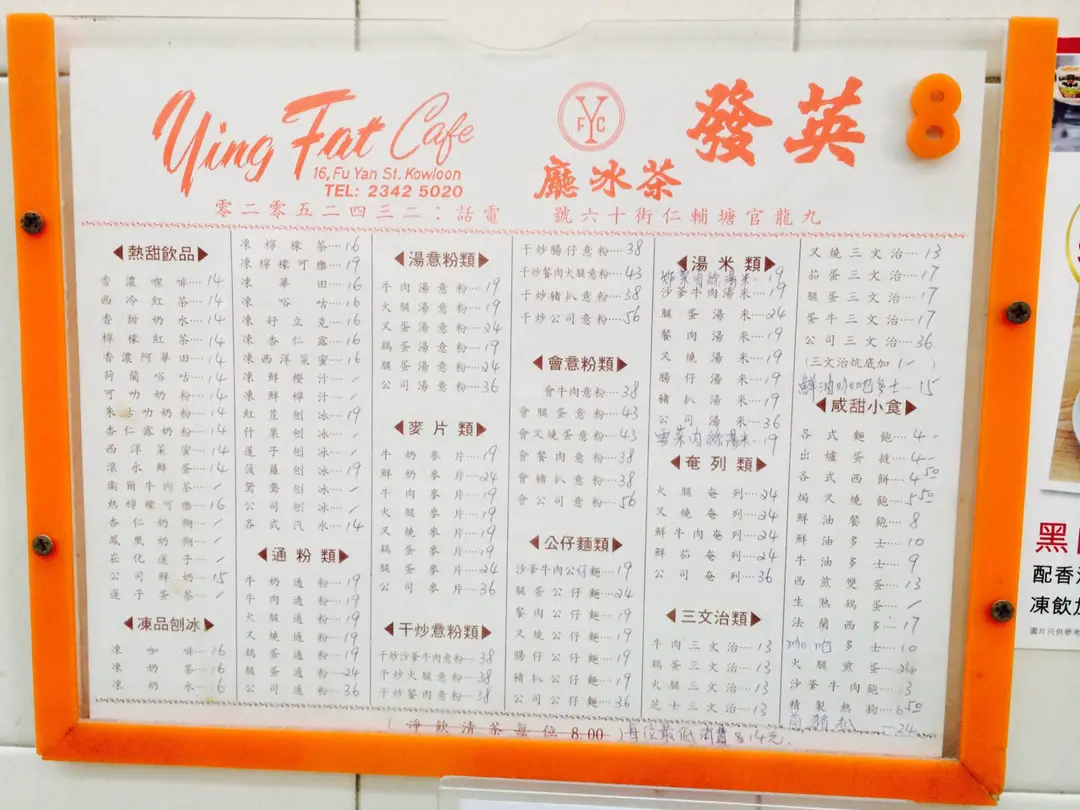 Ying Fat Cafe
16, Fu Yan St. Kowloon
TEL: 2342 5020
YFC
發英
廳冰茶
零二零五二四三二：話電
號六十街仁輔塘官龍九
8
熱甜飲品
香濃咖啡 14
西冷紅茶 14
香甜奶水 14
檸檬紅茶 14
香濃阿華田 14
荷蘭唂咕 14
可叻奶粉 14
朱古叻奶粉 14
杏仁露奶粉 14
西洋菜蜜 14
滾水鮮蛋 14
衞爾牛肉茶 /
熱檸檬可樂 16
杏仁奶
鳳凰奶
崧化蓮子 /
公司鮮奶 15
蓮子蛋茶 /
凍品刨冰
凍咖啡 16
凍奶茶 16
凍奶水 16
凍檸檬茶 16
凍檸檬可樂 19
凍華田 16
凍唂咕 16
凍好立克 16
凍杏仁露 16
凍西洋菜蜜 16
凍鮮橙汁 /
凍鮮檸汁 /
紅荳刨冰 19
什菓刨冰 /
蓮子刨冰 /
菠蘿刨冰 19
鴛鴦刨冰 /
公司刨冰 /
各式汽水 14
通粉類
牛奶通粉 19
牛肉通粉 19
火腿通粉 19
叉燒通粉 19
鷄蛋通粉 19
腿蛋通粉 24
公司通粉 36
湯意粉類
牛肉湯意粉 19
火腿湯意粉 19
叉蛋湯意粉 24
鷄蛋湯意粉 19
腿蛋湯意粉 24
公司湯意粉 36
麥片類
牛奶麥片 19
鮮奶麥片 24
牛肉麥片 19
火腿麥片 19
叉燒麥片 19
鷄蛋麥片 19
腿蛋麥片 24
公司麥片 36
干炒意粉類
干炒沙爹牛肉意粉 38
干炒火腿意粉 38
干炒餐肉意粉 38
干炒腸仔意粉 38
干炒餐肉火腿意粉 43
干炒豬扒意粉 38
干炒公司意粉 56
會意粉類
會牛肉意粉 38
會腿蛋意粉 43
會叉燒蛋意粉 43
會餐肉意粉 38
會豬扒意粉 38
會公司意粉 56
公仔麵類
沙爹牛肉公仔麵 19
腿蛋公仔麵 24
餐肉公仔麵 19
叉燒公仔麵 19
腸仔公仔麵 19
豬扒公仔麵 19
公司公仔麵 36
湯米類
菜肉絲湯米 19
沙爹牛肉湯米 19
腿蛋湯米 24
餐肉湯米 19
叉燒湯米 19
腸仔湯米 19
豬扒湯米 19
公司湯米 36
雪菜肉絲湯米 19
奄列類
火腿奄列 24
叉燒奄列 24
鮮牛肉奄列 24
鮮茄奄列 24
公司奄列 36
三文治類
牛肉三文治 13
鷄蛋三文治 13
火腿三文治 13
芝士三文治 13
叉燒三文治 13
茄蛋三文治 17
腿蛋三文治 17
蛋牛三文治 17
公司三文治 36
(三文治坑底加 1/ )
鮮油叻吔多士 15
咸甜小食
各式麵飽 4-
出爐蛋撻 4-
各式西餅 4 50
焗叉燒飽 5 50
鮮油餐飽 8
鮮油多士 10
牛油多士 9
西煎雙蛋 13
生熟鷄蛋 /
法蘭西多 17
叻吔多士 10
火腿煎蛋 24
沙爹牛肉飽 13
精製熱狗 6 50
豬扒 34
(淨飲清茶每位 8.00) 每位最低消費 $14元.
黑
配香
凍飲
圖片只供參考